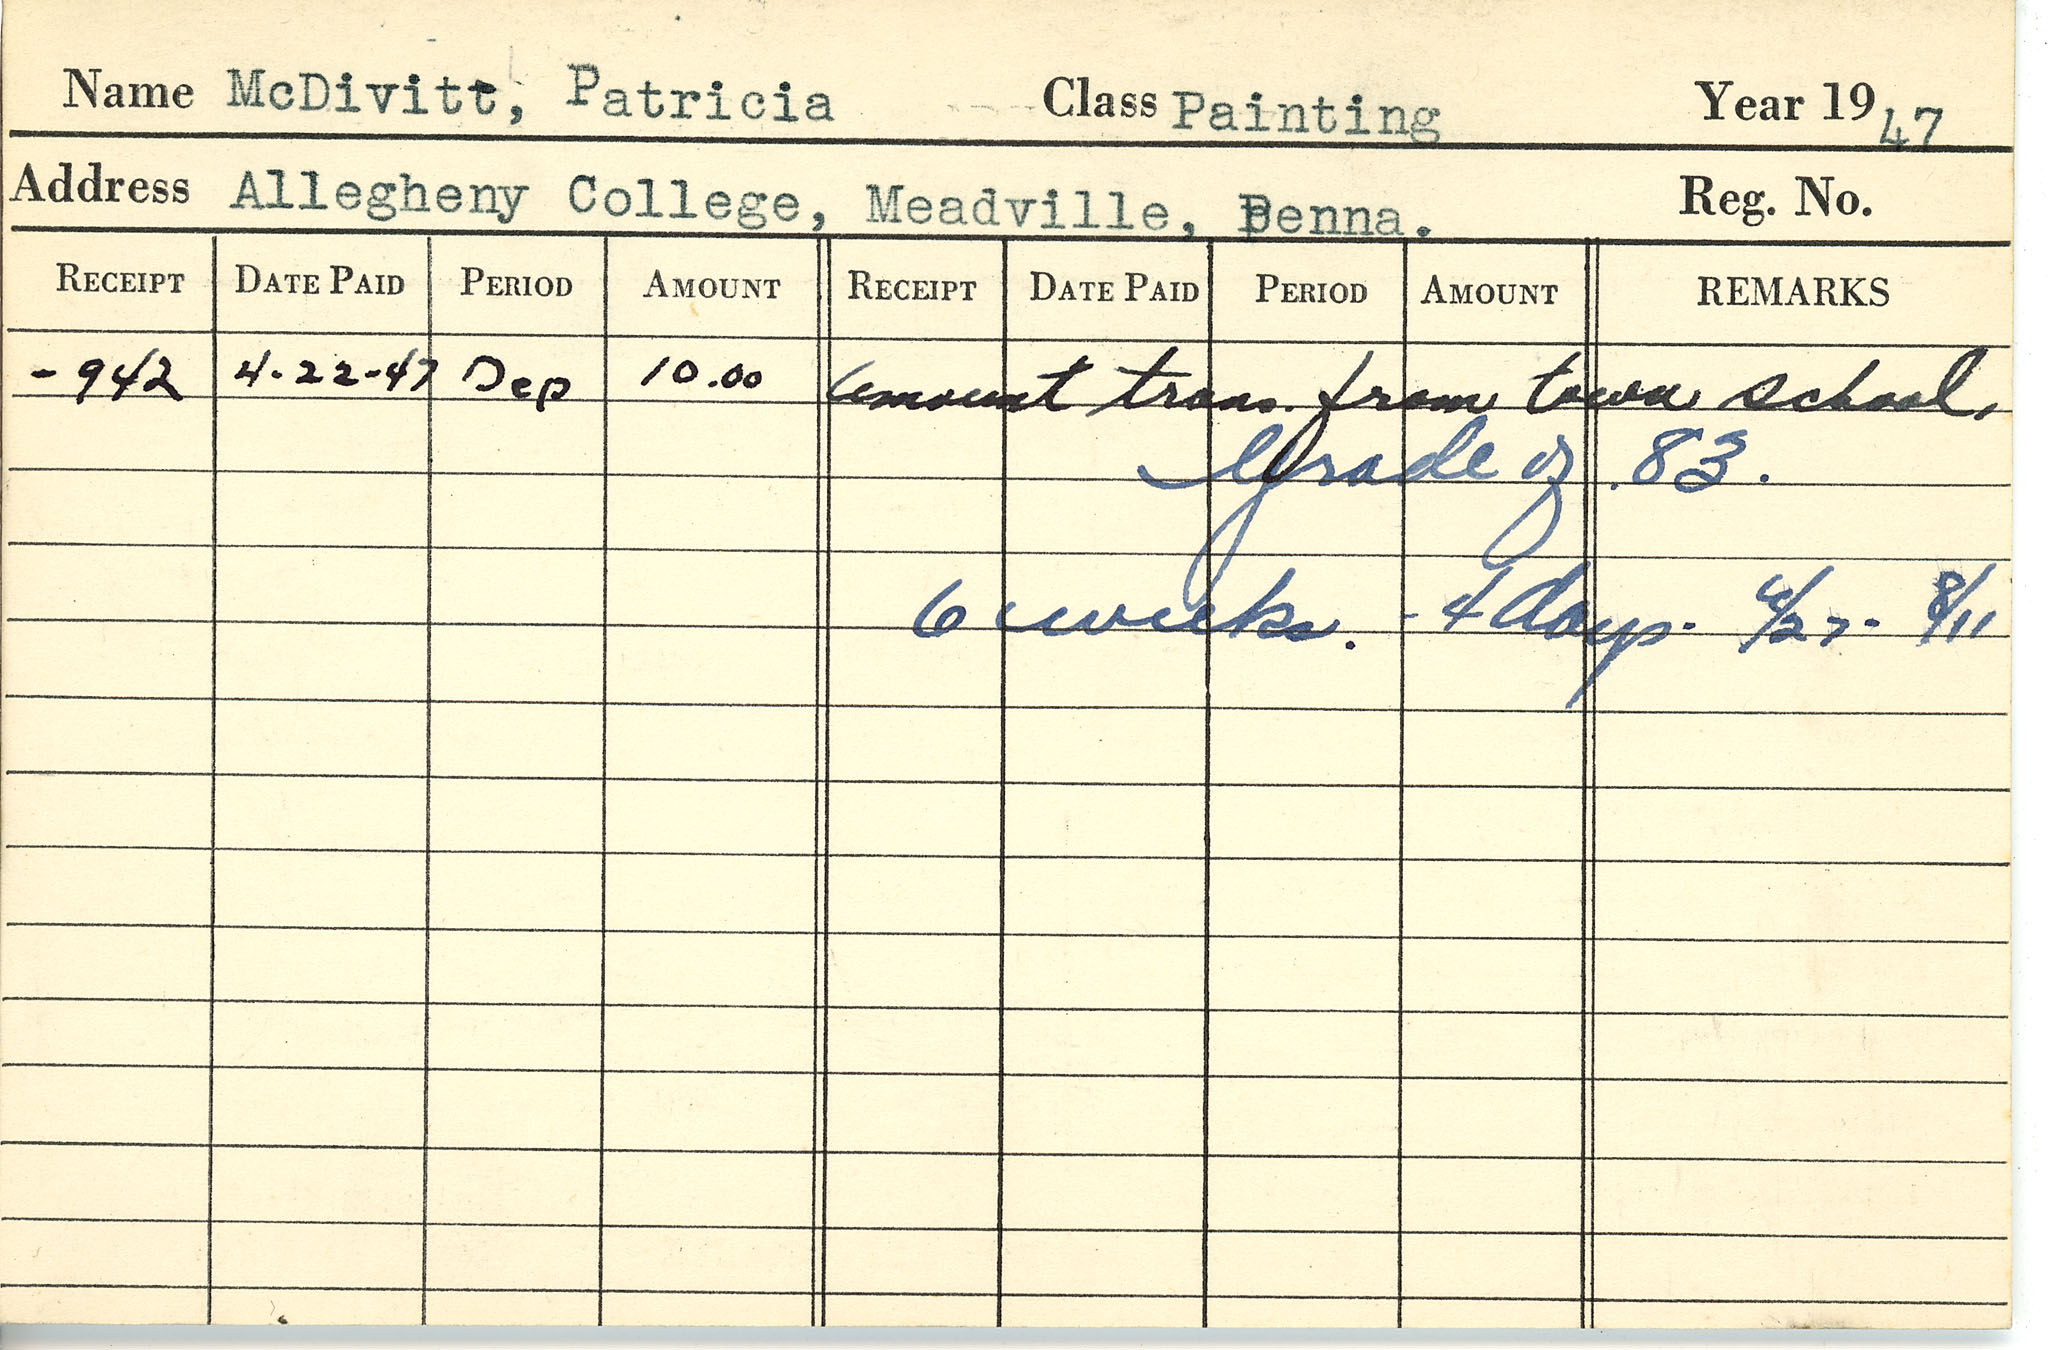 Name McDivitt, Patricia Class Painting Year 1947
Address Allegheny College, Meadville, Penna. Reg. No.
RECEIPT DATE PAID PERIOD AMOUNT RECEIPT DATE PAID PERIOD AMOUNT REMARKS
-942 4-22-47 Dep 10.00 amount trans. from town school.
Grade of 83.
6 weeks. - 4 days. 6/27- 8/11